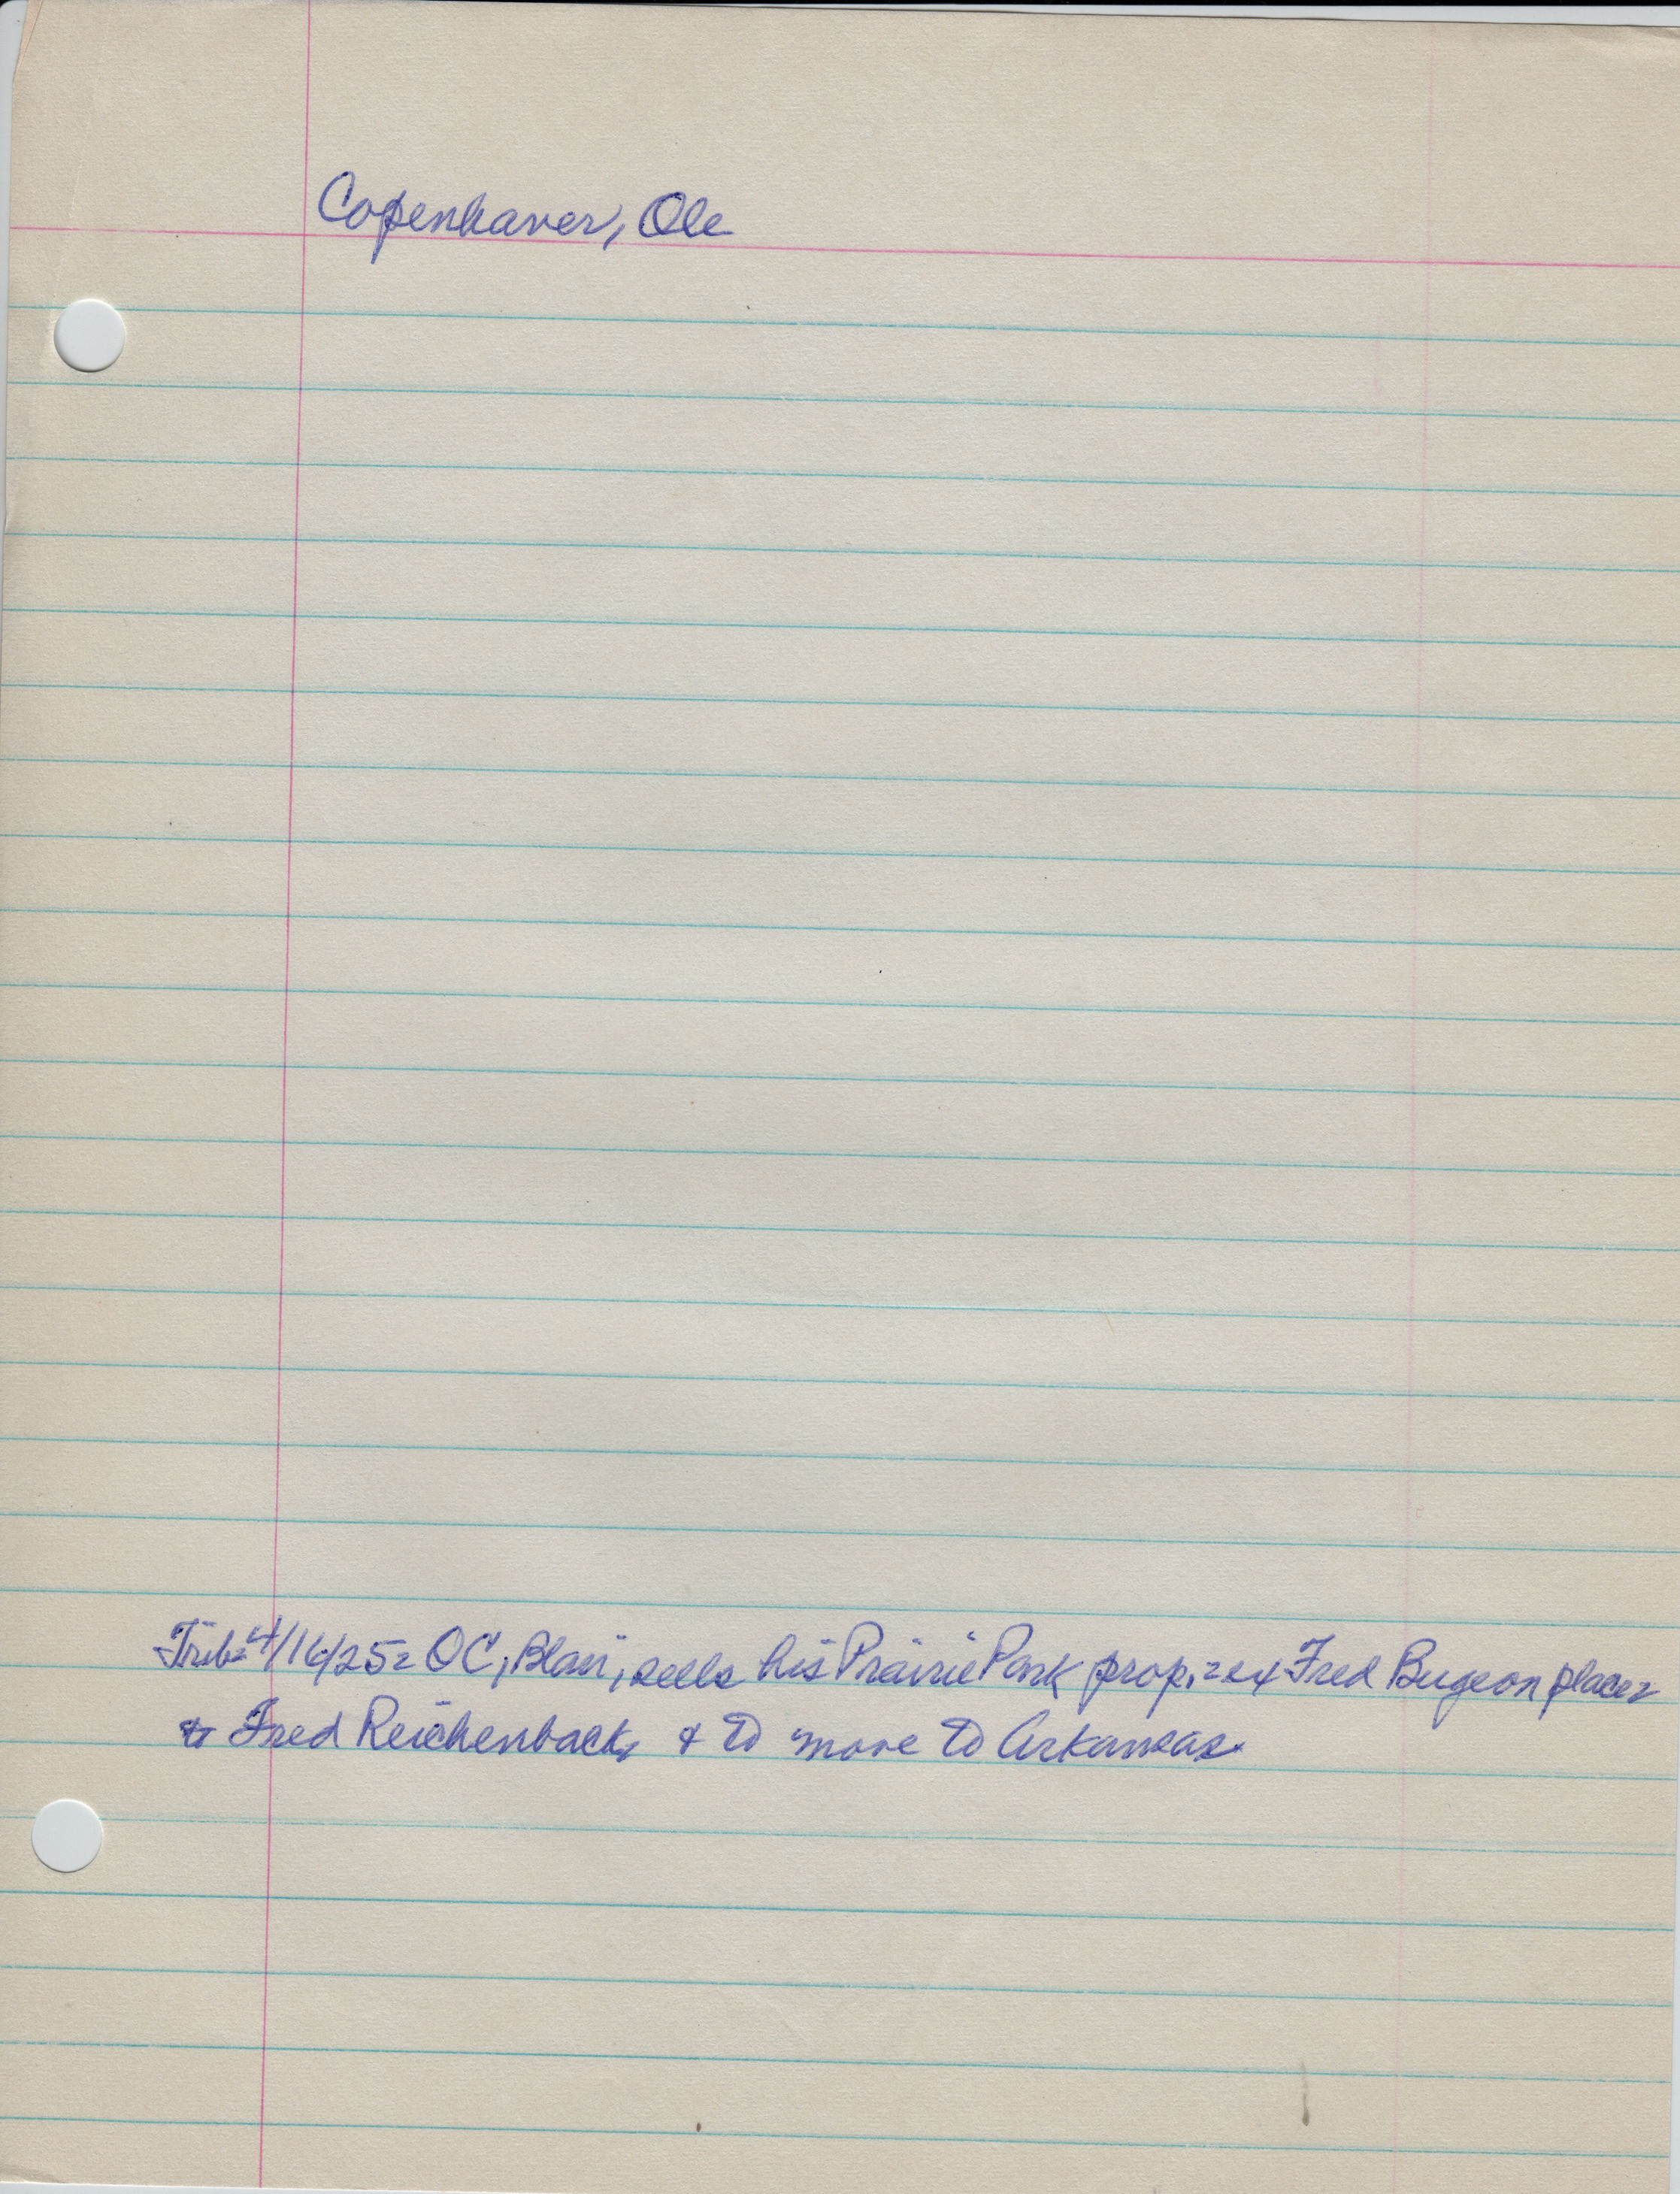 Copenhaver, Ole
Trib=4/16/25= OC, Blair, sells his Prairie Park prop.=ex Fred Bugeon place=
to Fred Reichenback, & to move to Arkansas.